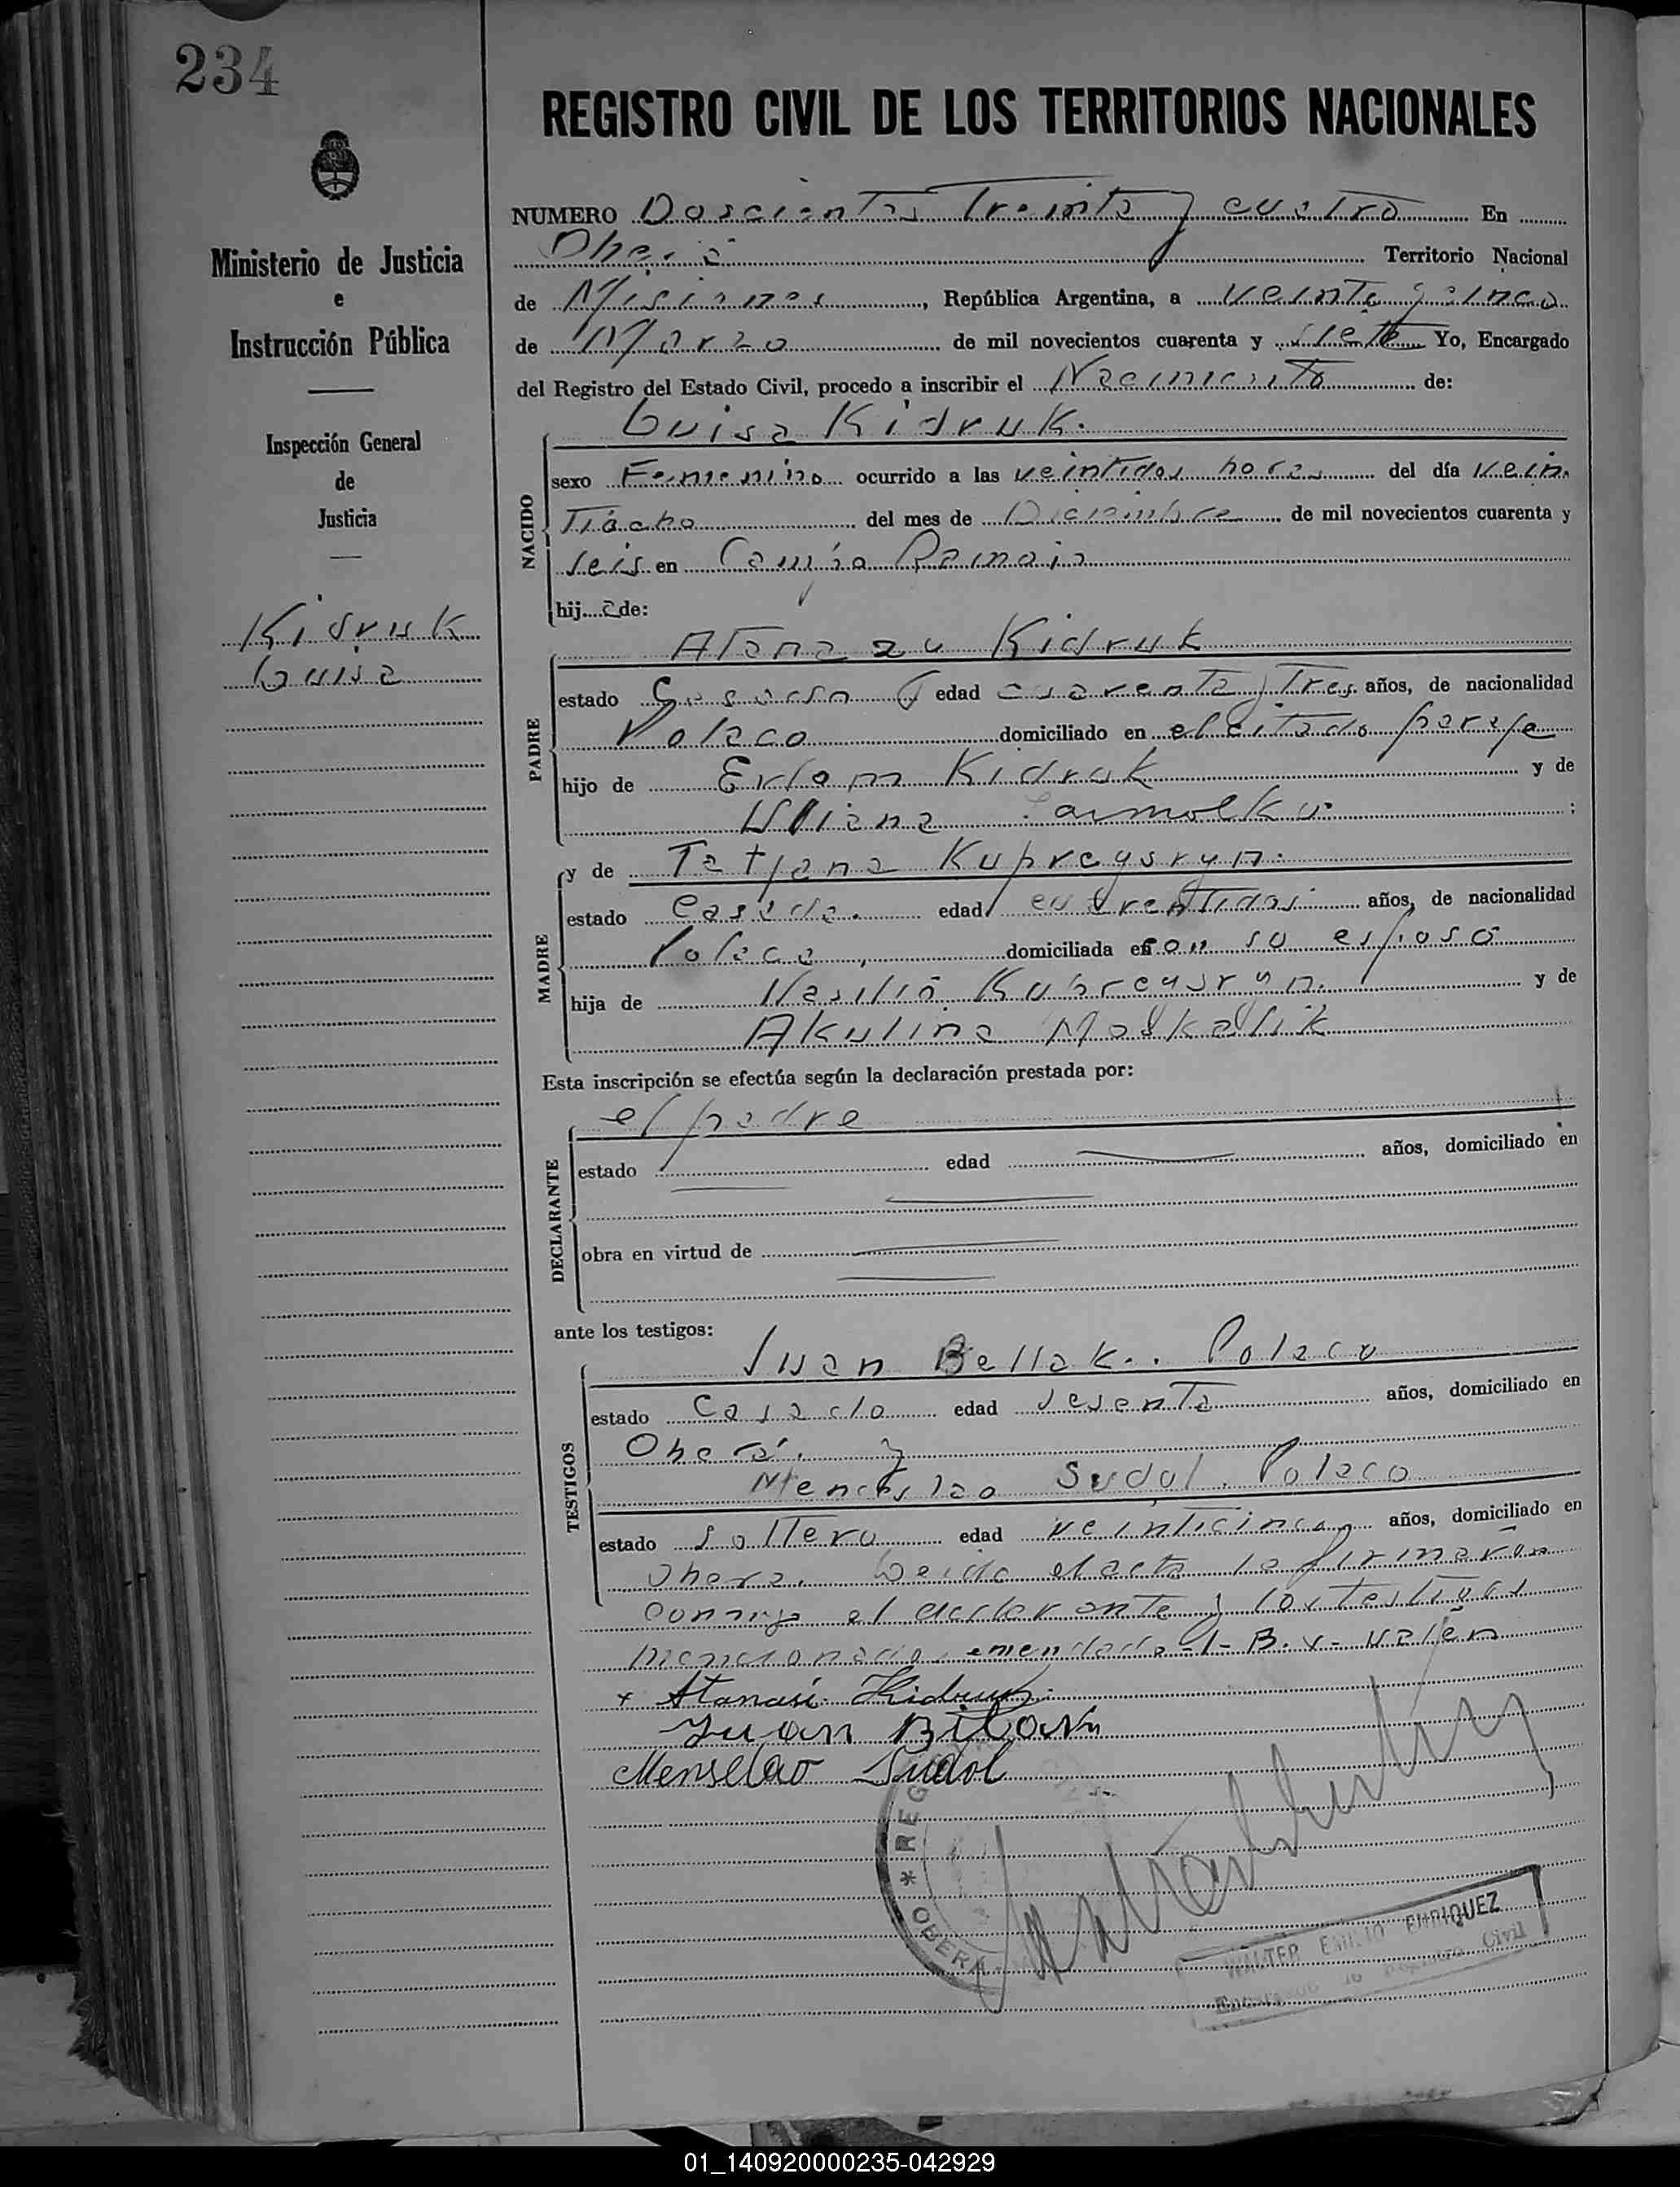 234
REGISTRO CIVIL DE LOS TERRITORIOS NACIONALES
Ministerio de Justicia
e
Instrucción Pública
Inspección General
de
Justicia
Kidruk
Luisa
NUMERO Doscientos Treinta y cuatro En
Oberá Territorio Nacional
de Misiones, República Argentina, a veinte y cinco
de Marzo de mil novecientos cuarenta y siete Yo, Encargado
del Registro del Estado Civil, procedo a inscribir el Nacimiento de:
Luisa Kidruk.
NACIDO
sexo Femenino ocurrido a las veintidos horas del día vein
tiocho del mes de Diciembre de mil novecientos cuarenta y
seis en Campo Ramón
hij a de:
Atanazu Kidruk
PADRE
estado edad cuarenta y tres años, de nacionalidad
Polaco domiciliado en el citado paraje
hijo de Kidruk y de
Uliana
y de Tatjana Kupreysryn.
MADRE
estado Casada. edad cuarentidos años, de nacionalidad
Polaca, domiciliada en con su esposo
hija de Vasilio Kupreysryn. y de
Akulina Moskalik
Esta inscripción se efectúa según la declaración prestada por:
el padre
DECLARANTE
estado edad años, domiciliado en
obra en virtud de
ante los testigos:
Juan Bellak. Polaco
TESTIGOS
estado Casado edad sesenta años, domiciliado en
Oberá. y
Menceslao Sudol. Polaco
estado soltero edad veinticinco años, domiciliado en
Obera. Leida el acta la firmaron
conmigo el declarante y los testigos
mencionados enmendado-l-B.v- valen
x Atanasi Kidruk
Juan
Menselao Sudol
* REG
OBERA
WALTER EMILIO ENRIQUEZ
Encargado de Registro Civil
01_140920000235-042929